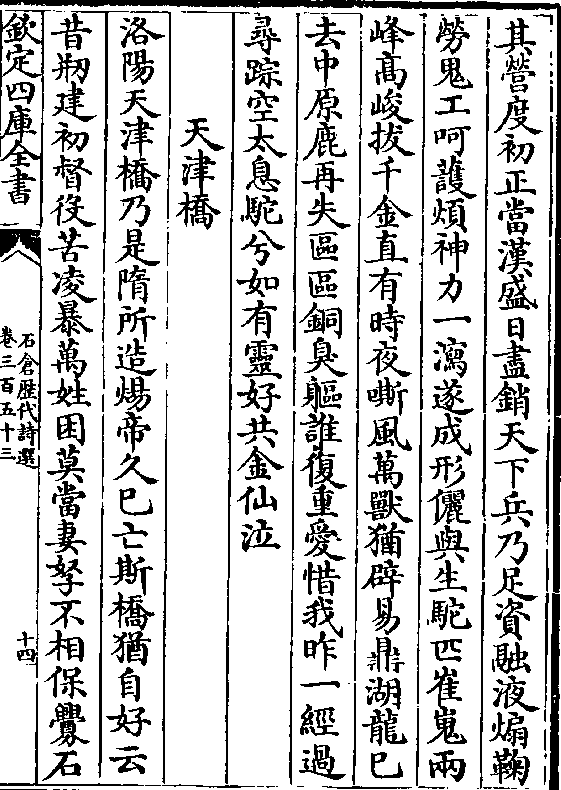 其營度初正當漢盛日盡銷天下兵乃足資融液煽鞴
勞鬼工呵護煩神力一瀉遂成形儷與生駝匹崔嵬兩
峰高峻拔千金直有時夜嘶風萬獸猶辟易鼎湖龍已
去中原鹿再失區區銅臭軀誰復重愛惜我昨一經過
尋踪空太息駝兮如有靈好共金仙泣
天津橋
洛陽天津橋乃是隋所造煬帝久已亡斯橋猶自好云
昔刱建初督役苦凌暴萬姓困莫當妻孥不相保釁石
欽定四庫全書
石倉歷代詩選
卷三百五十三
十四